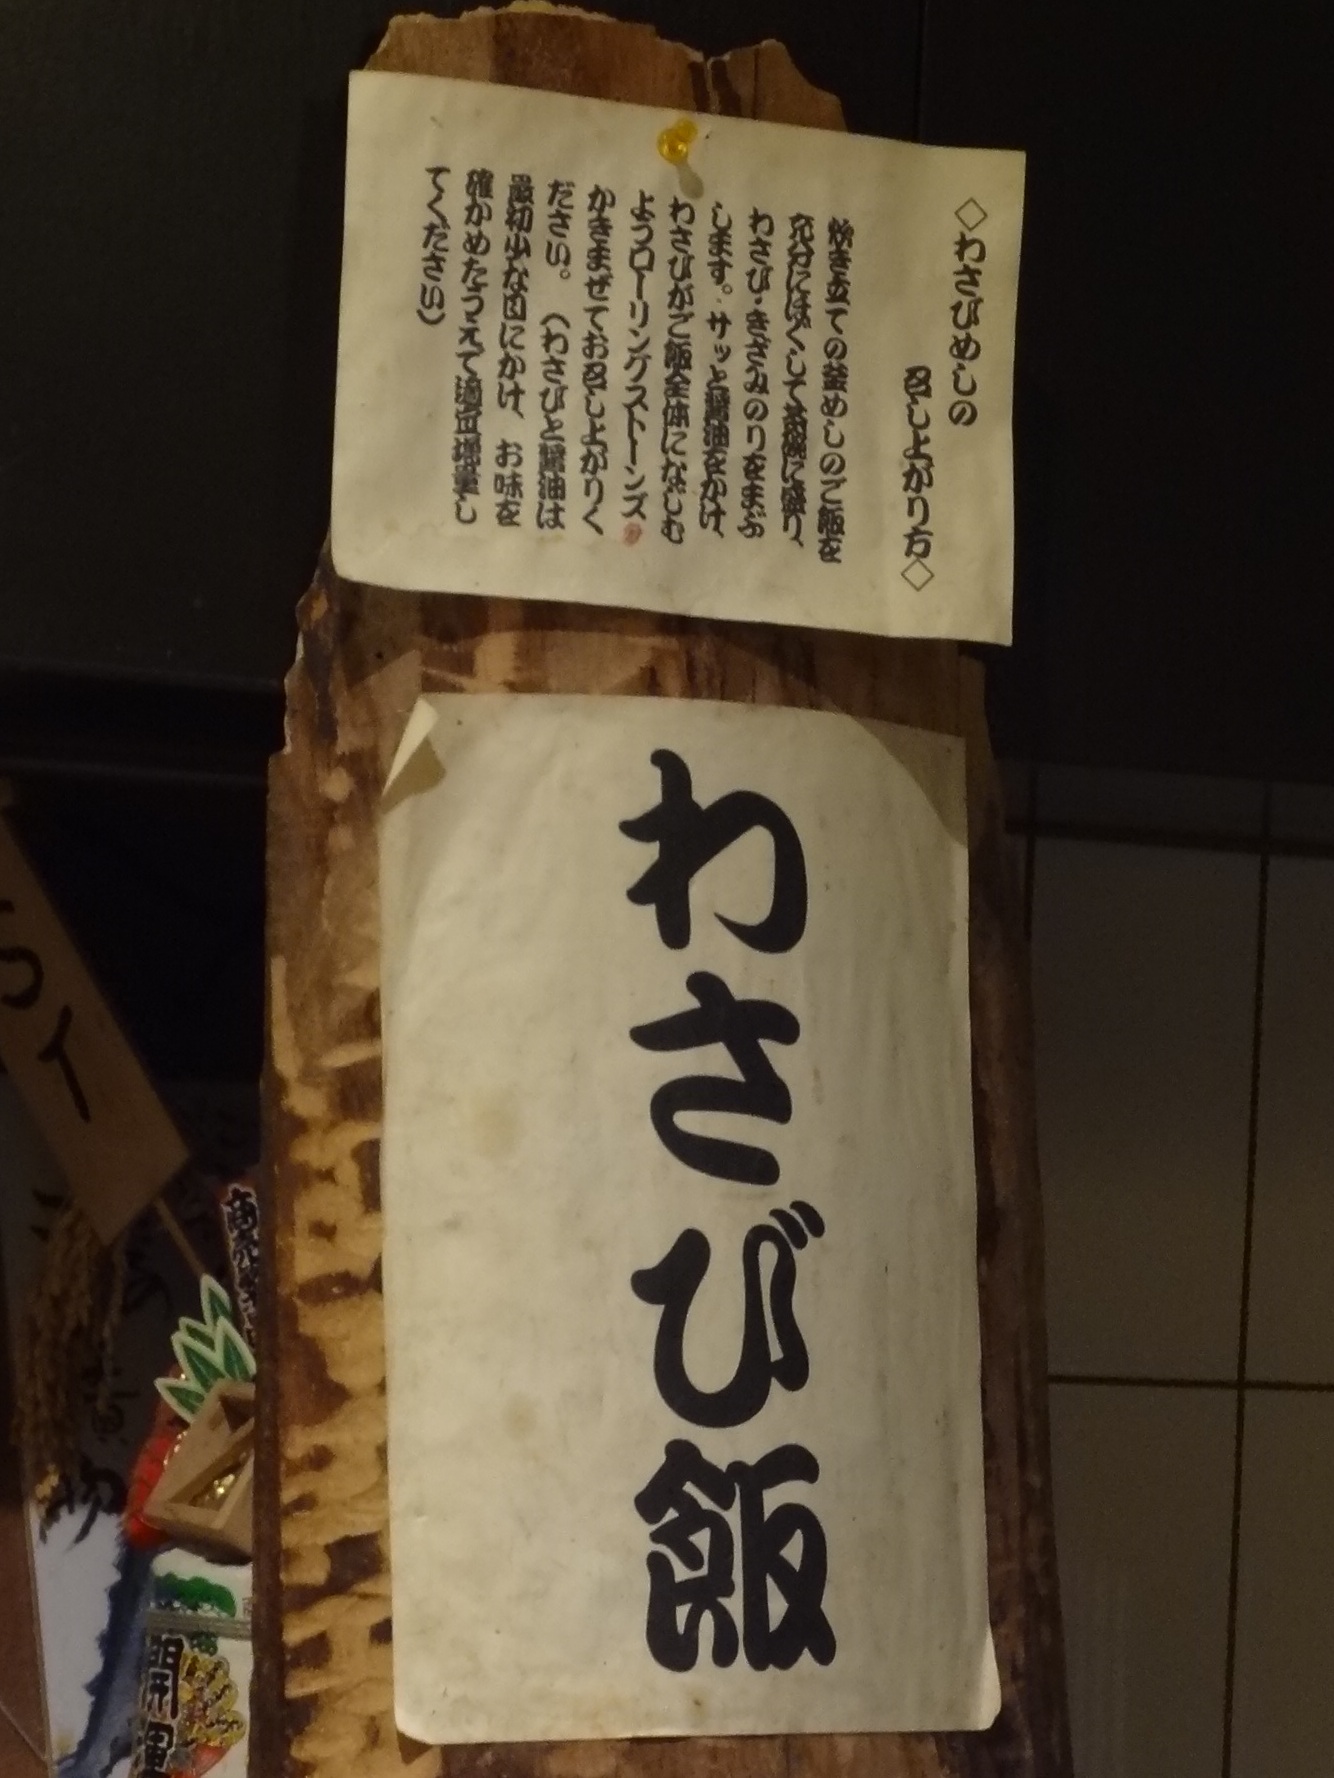 ◇わさびめしの
召し上がり方◇
炊き立ての釜めしのご飯を
充分にほぐして茶碗に盛り、
わさび・きざみのりをまぶ
します。サッと醤油をかけ、
わさびがご飯全体になじむ
ようローリングストーンズ
かきまぜてお召し上がりく
ださい。（わさびと醤油は
最初少な目にかけ、お味を
確かめたうえで適宜増量し
てください）
わさび飯
らイ
商売
開運